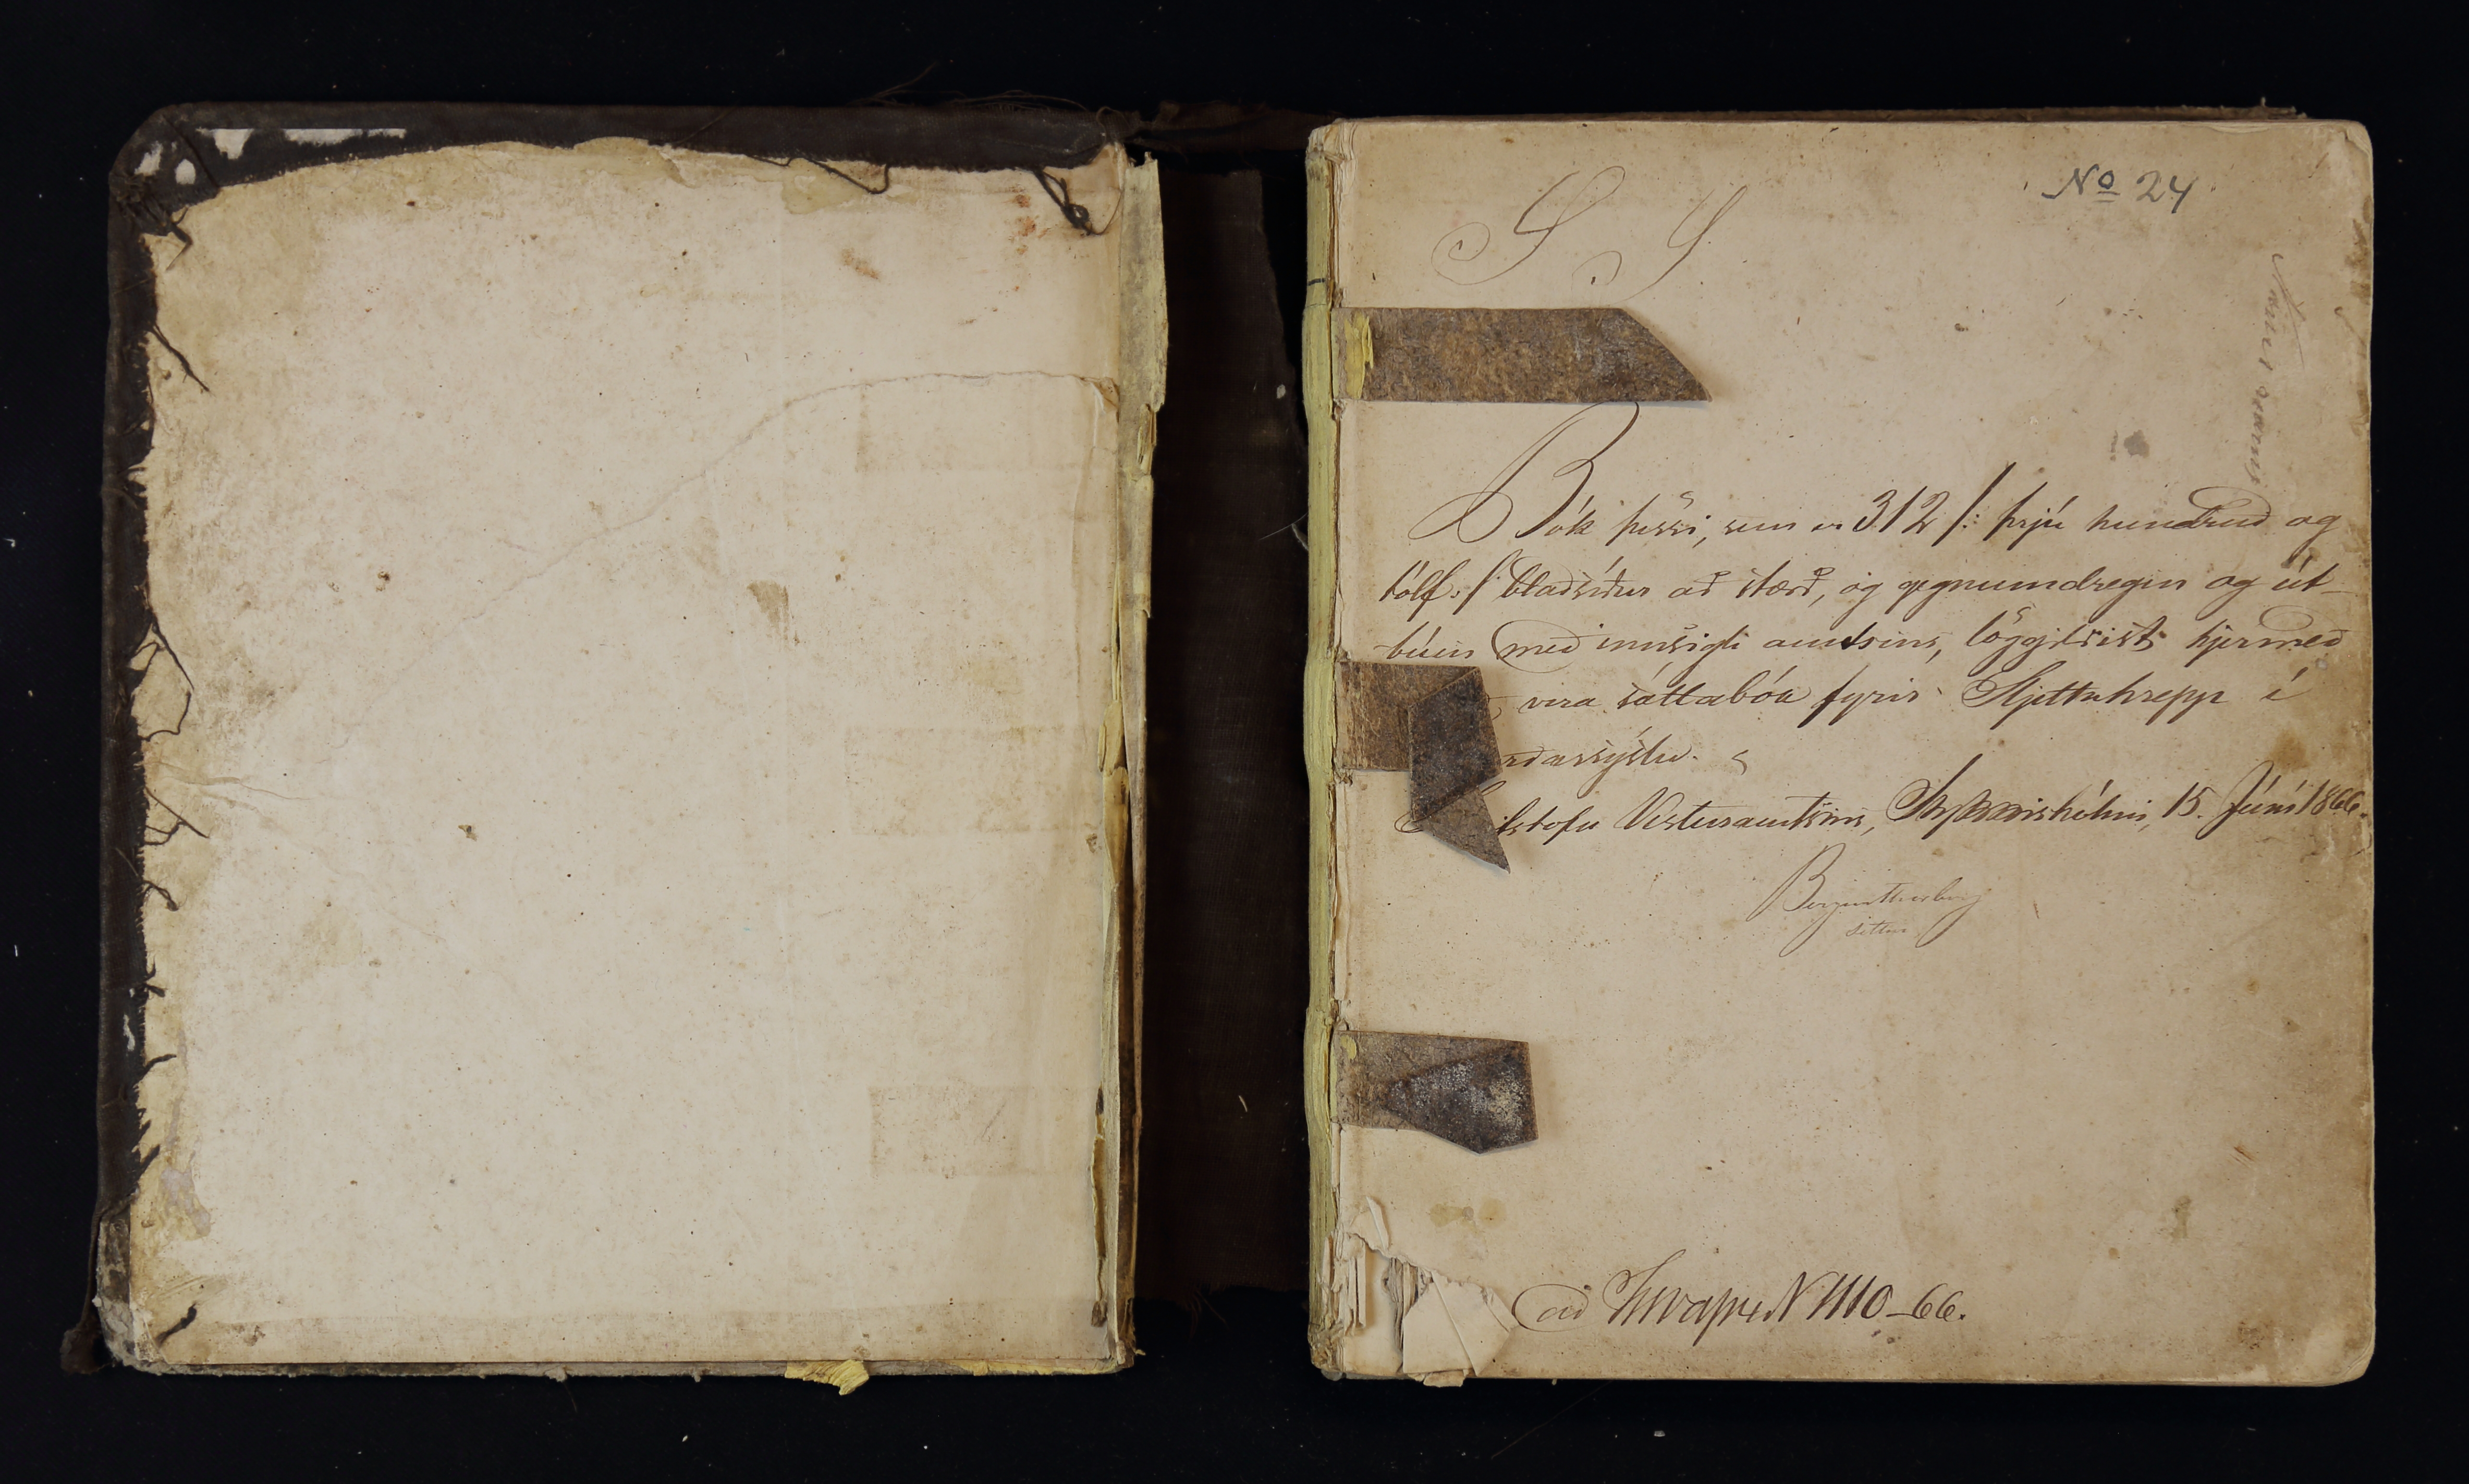 No 24
S S
Bók þessi, sem er 312 /: þrjú hundruð og
tólf :/ blaðsíður að stærð, og gegnumdregin og út-
búin með innsigli amtsins, löggildist hjermeð
vera sáttabók fyrir Sljettuhrepp í
rðarsýslu.
Skrifstofu Vesturamtsins, Stykkishólmi, 15. Júní 1866.
Bergur Thorberg
settur
ad N 1110-66.